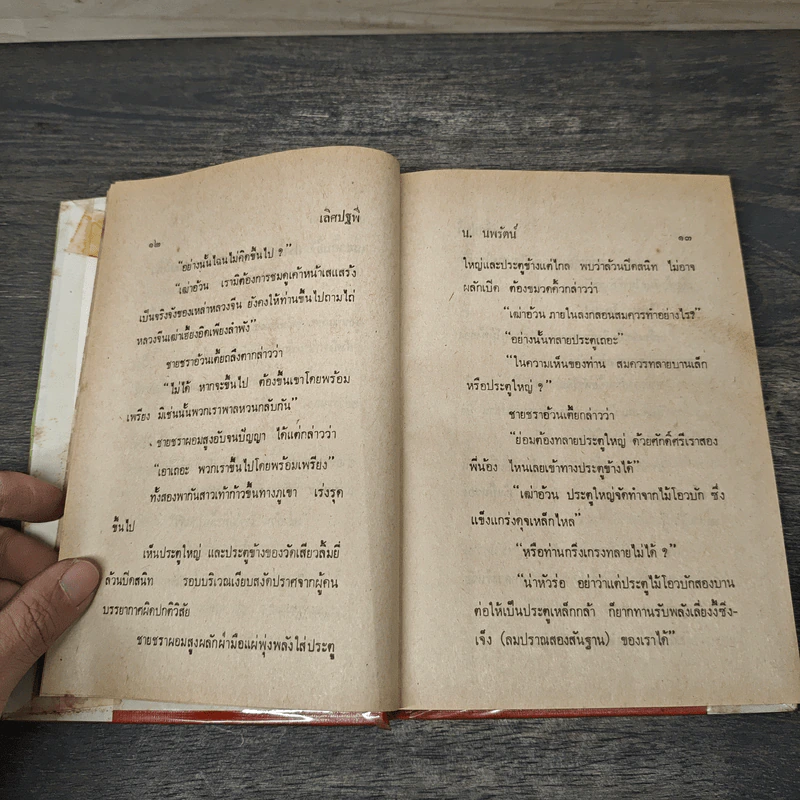 เลิศปฐพี
๑๒
“อย่างนั้นไฉนไม่คิดขึ้นไป ?”
“เฒ่าอ้วน เรามิต้องการชมดูเค้าหน้าเสแสร้ง
เป็นจริงจังของเหล่าหลวงจีน ยังคงให้ท่านขึ้นไปถามไถ่
หลวงจีนเฒ่าเฮี้ยงอิดเพียงลำพัง”
ชายชราอ้วนเตี้ยถลึงตากล่าวว่า
“ไม่ได้ หากจะขึ้นไป ต้องขึ้นเขาโดยพร้อม
เพรียง มิเช่นนั้นพวกเราพาลหวนกลับกัน”
ชายชราผอมสูงอับจนปัญญา ได้แต่กล่าวว่า
“เอาเถอะ พวกเราขึ้นไปโดยพร้อมเพรียง”
ทั้งสองพากันสาวเท้าก้าวขึ้นทางภูเขา เร่งรุด
ขึ้นไป
เห็นประตูใหญ่ และประตูข้างของวัดเสียวลิ้มยี่
ล้วนปิดสนิท รอบบริเวณเงียบสงัดปราศจากผู้คน
บรรยากาศผิดปกติวิสัย
ชายชราผอมสูงผลักฝ่ามือแผ่พุ่งพลังใส่ประตู
น. นพรัตน์
๑๓
ใหญ่และประตูข้างแต่ไกล พบว่าล้วนปิดสนิท ไม่อาจ
ผลักเปิด ต้องขมวดคิ้วกล่าวว่า
“เฒ่าอ้วน ภายในลงกลอนสมควรทำอย่างไร?”
“อย่างนั้นทลายประตูเถอะ”
“ในความเห็นของท่าน สมควรทลายบานเล็ก
หรือประตูใหญ่ ?”
ชายชราอ้วนเตี้ยกล่าวว่า
“ย่อมต้องทลายประตูใหญ่ ด้วยศักดิ์ศรีเราสอง
พี่น้อง ไหนเลยเข้าทางประตูข้างได้”
“เฒ่าอ้วน ประตูใหญ่จัดทำจากไม้โอวบัก ซึ่ง
แข็งแกร่งดุจเหล็กไหล”
“หรือท่านกริ่งเกรงทลายไม่ได้ ?”
“น่าหัวร่อ อย่าว่าแต่ประตูไม้โอวบักสองบาน
ต่อให้เป็นประตูเหล็กกล้า ก็ยากทานรับพลังเลี่ยงงี้ซิ่ง-
เจ็ง (ลมปราณสองสันฐาน) ของเราได้”